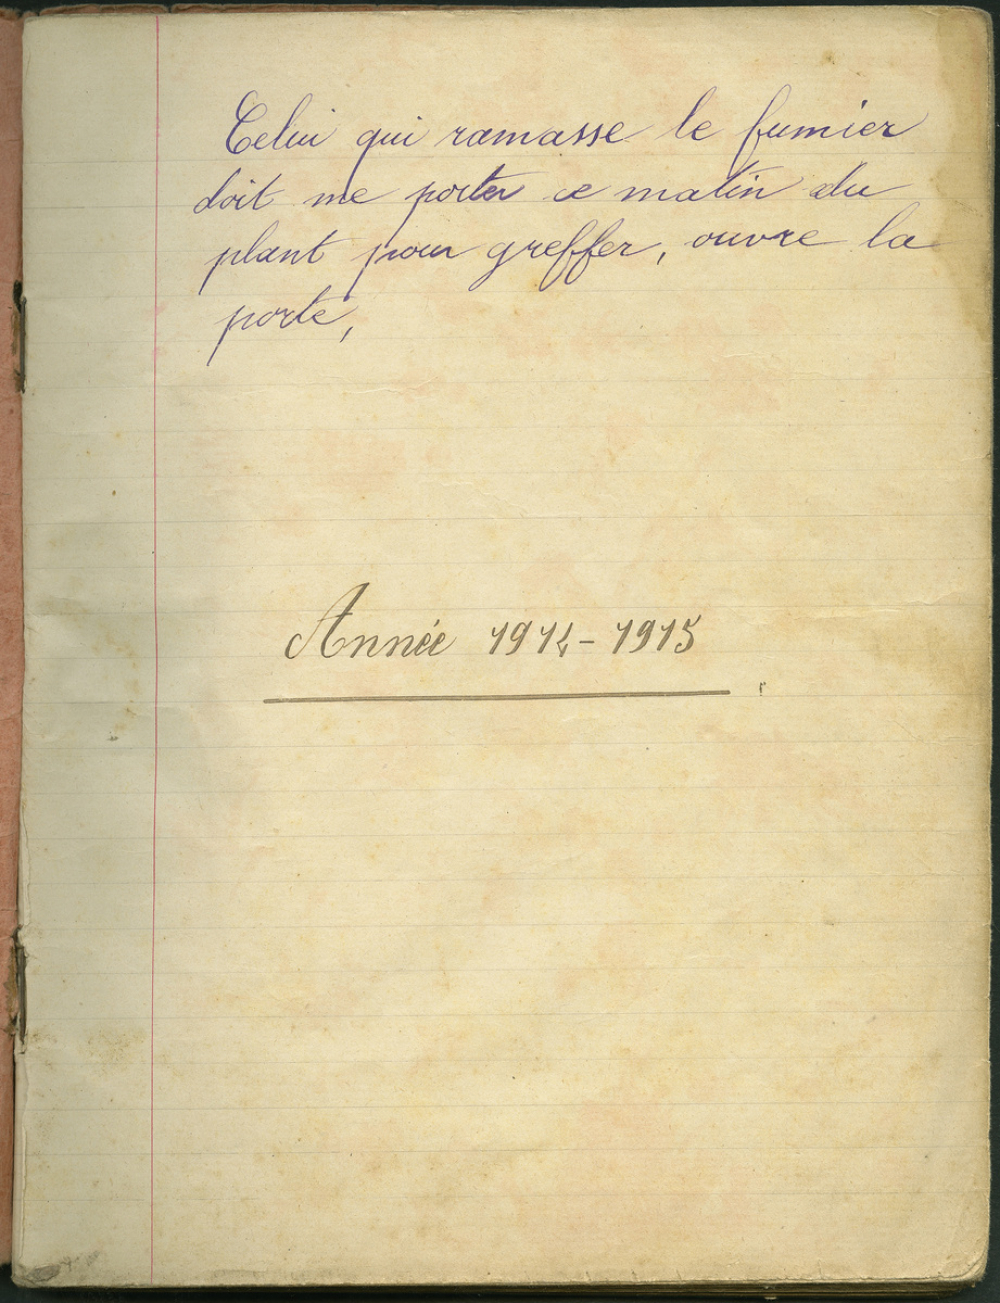 Celui qui ramasse le fumier
doit me porter ce matin du
plant pour greffer, ouvre la
porte,
Année 1914-1915